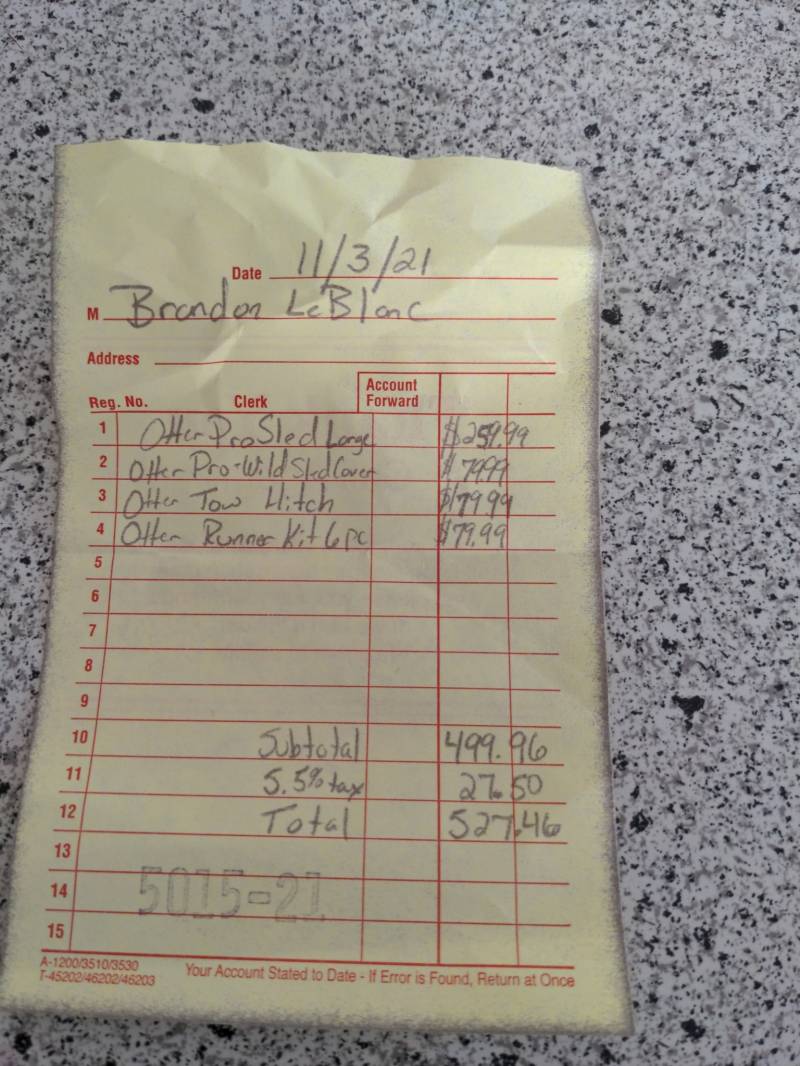 Date 11/3/21
M Brandon LeBlanc
Address
Reg. No. Clerk Account Forward
1 Otter Pro Sled Large $259.99
2 Otter Pro-Wild Sled Cover $79.99
3 Otter Tow Hitch $79.99
4 Otter Runner Kit 6 pc $79.99
5
6
7
8
9
10 Subtotal 499.96
11 5.5% tax 27.50
12 Total 527.46
13
14 5015-21
15
A-1200/3510/3530
T-45202/46202/46203
Your Account Stated to Date - If Error is Found, Return at Once